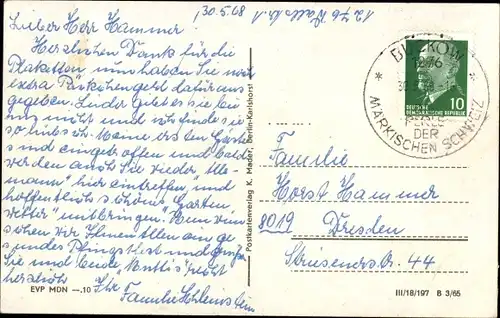 30.5.68
1276 Waldstr. 1
Lieber Herr Hammer.
Herzlichen Dank für die
Plaketten, nun haben Sie noch
extra Päckchengeld dafür aus
gegeben. Leider gibt es sie bei
uns nicht und ich finde sie
so hübsch. Meine ersten Gäste
sind eingetroffen und bald
werden auch Sie wieder
hier eintreffen und
hoffentlich schönes Garten
wetter mitbringen. Nun wün
schen wir Ihnen Allen ein ge
sundes Pfingstfest und
Sie und
herzlich Ihre
Familie
EVP MDN —.10
Postkartenverlag K. Mader, Berlin-Karlshorst
BUCKOW
1276
30.5.68
PERLE
DER
MÄRKISCHEN SCHWEIZ
DEUTSCHE
DEMOKRATISCHE REPUBLIK
10
Familie
Horst Hammer
8019 Dresden
Striesener Str. 44
III/18/197 B 3/65